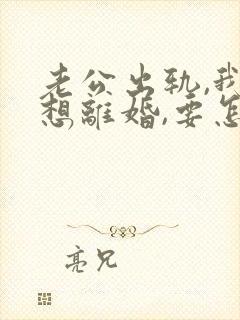 老公出轨,我
想離婚,要怎
亮兄